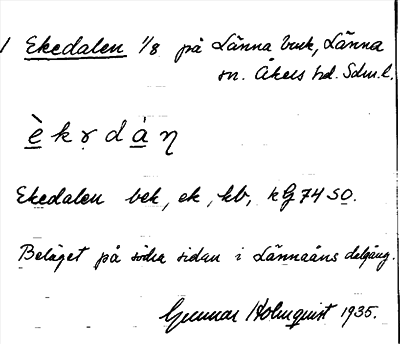 1 Ekedalen 1/8 på Länna bruk, Länna
sn. Åkers hd. Sdm.l.
è k ṛ d à ŋ
Ekedalen bek, ek, kb, kG 74 SO.
Beläget på södra sidan i Lännaåns dalgång.
Gunnar Holmquist 1935.